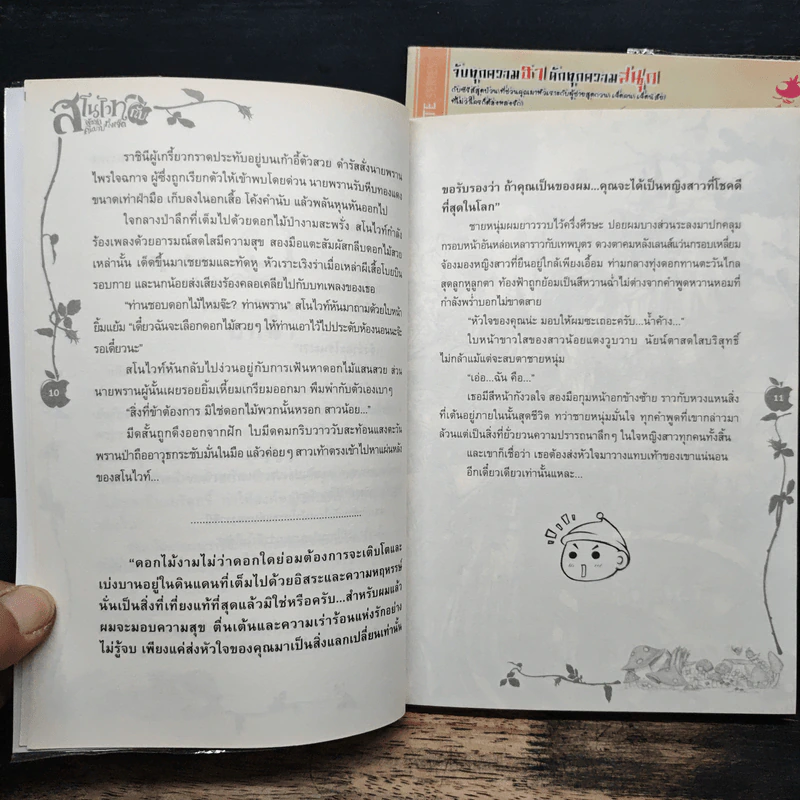 สโนไวท์
ราชินีผู้เกรี้ยวกราดประทับอยู่บนเก้าอี้ตัวสวย ดำรัสสั่งนายพราน
ไพรใจฉกาจ ผู้ซึ่งถูกเรียกตัวให้เข้าพบโดยด่วน นายพรานรับหีบทองแดง
ขนาดเท่าฝ่ามือ เก็บลงในอกเสื้อ โค้งคำนับ แล้วพลันหุนหันออกไป
ใจกลางป่าลึกที่เต็มไปด้วยดอกไม้ป่างามสะพรั่ง สโนไวท์กำลัง
ร้องเพลงด้วยอารมณ์สดใสมีความสุข สองมือแตะสัมผัสกลีบดอกไม้สวย
เหล่านั้น เด็ดขึ้นมาเชยชมและทัดหู หัวเราะเริงร่าเมื่อเหล่าผีเสื้อโบยบิน
รอบกาย และนกน้อยส่งเสียงร้องคลอเคลียไปกับบทเพลงของเธอ
“ท่านชอบดอกไม้ไหมจ๊ะ? ท่านพราน” สโนไวท์หันมาถามด้วยใบหน้า
ยิ้มแย้ม “เดี๋ยวฉันจะเลือกดอกไม้สวยๆ ให้ท่านเอาไว้ไปประดับห้องนอนนะจ๊ะ
รอเดี๋ยวนะ”
สโนไวท์หันกลับไปง่วนอยู่กับการเฟ้นหาดอกไม้แสนสวย ส่วน
นายพรานผู้นั้นเผยรอยยิ้มเหี้ยมเกรียมออกมา พึมพำกับตัวเองเบาๆ
“สิ่งที่ข้าต้องการ มิใช่ดอกไม้พวกนั้นหรอก สาวน้อย...”
มีดสั้นถูกดึงออกจากฝัก ใบมีดคมกริบวาววับสะท้อนแสงตะวัน
พรานป่าถืออาวุธกระชับมั่นในมือ แล้วค่อยๆ สาวเท้าตรงเข้าไปหาแผ่นหลัง
ของสโนไวท์...
“ดอกไม้งามไม่ว่าดอกใดย่อมต้องการจะเติบโตและ
เบ่งบานอยู่ในดินแดนที่เต็มไปด้วยอิสระและความหฤหรรษ์
นั่นเป็นสิ่งที่เที่ยงแท้ที่สุดแล้วมิใช่หรือครับ...สำหรับผมแล้ว
ผมจะมอบความสุข ตื่นเต้นและความเร่าร้อนแห่งรักอย่าง
ไม่รู้จบ เพียงแค่ส่งหัวใจของคุณมาเป็นสิ่งแลกเปลี่ยนเท่านั้น
10
จับทุกความฮา! ดักทุกความสนุก!
ขอรับรองว่า ถ้าคุณเป็นของผม...คุณจะได้เป็นหญิงสาวที่โชคดี
ที่สุดในโลก”
ชายหนุ่มผมยาวรวบไว้ครึ่งศีรษะ ปอยผมบางส่วนระลงมาปกคลุม
กรอบหน้าอันหล่อเหลาราวกับเทพบุตร ดวงตาคมหลังเลนส์แว่นกรอบเหลี่ยม
จ้องมองหญิงสาวที่ยืนอยู่ใกล้เพียงเอื้อม ท่ามกลางทุ่งดอกทานตะวันไกล
สุดลูกหูลูกตา ท้องฟ้าถูกย้อมเป็นสีหวานฉ่ำไม่ต่างจากคำพูดหวานหอมที่
กำลังพร่ำบอกไม่ขาดสาย
“หัวใจของคุณน่ะ มอบให้ผมซะเถอะครับ...น้ำค้าง...”
ใบหน้าขาวใสของสาวน้อยแดงวูบวาบ นัยน์ตาสดใสบริสุทธิ์
ไม่กล้าแม้แต่จะสบตาชายหนุ่ม
“เอ่อ...ฉัน คือ...”
เธอมีสีหน้ากังวลใจ สองมือกุมหน้าอกข้างซ้าย ราวกับหวงแหนสิ่ง
ที่เต้นอยู่ภายในนั้นสุดชีวิต ทว่าชายหนุ่มมั่นใจ ทุกคำพูดที่เขากล่าวมา
ล้วนแต่เป็นสิ่งที่ยั่วยวนความปรารถนาลึกๆ ในใจหญิงสาวทุกคนทั้งสิ้น
และเขาก็เชื่อว่า เธอต้องส่งหัวใจมาวางแทบเท้าของเขาแน่นอน
อีกเดี๋ยวเดียวเท่านั้นแหละ...
11